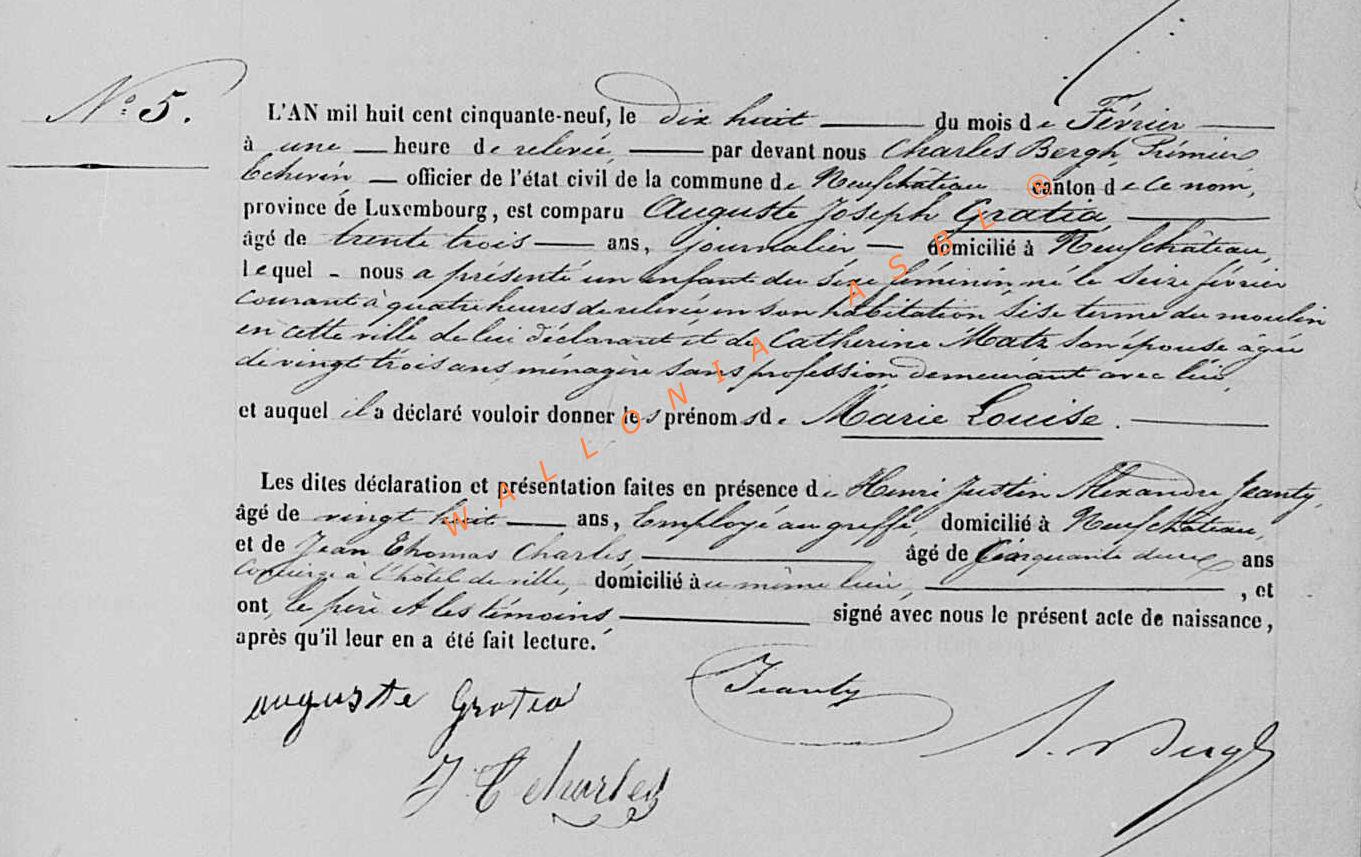 N° 5.
L'AN mil huit cent cinquante-neuf, le dix huit du mois de Février
à une heure de relevée, par devant nous Charles Bergh, Prémier
Echevin officier de l'état civil de la commune de Neufchâteau canton de ce nom,
province de Luxembourg, est comparu Auguste Joseph Gratia
âgé de trente trois ans, journalier domicilié à Neufchâteau,
lequel nous a présenté un enfant du sexe féminin, né le seize février
courant à quatre heures de relevée en son habitation sise terme du moulin
en cette ville de lui déclarant et de Catherine Matz son épouse âgée
de vingt trois ans, ménagère sans profession demeurant avec lui,
et auquel il a déclaré vouloir donner les prénoms de Marie Louise.
Les dites déclaration et présentation faites en présence de Henri Justin Alexandre Jeanty,
âgé de vingt huit ans, Employé au greffe, domicilié à Neufchâteau,
et de Jean Thomas Charles, âgé de Cinquante deux ans
Concierge à l'hôtel de ville, domicilié au même lieu, , et
ont, le père et les témoins, signé avec nous le présent acte de naissance,
après qu'il leur en a été fait lecture.
auguste Gratia
Jeanty
J T charles
Bergh
WALLONIA ASBL ®